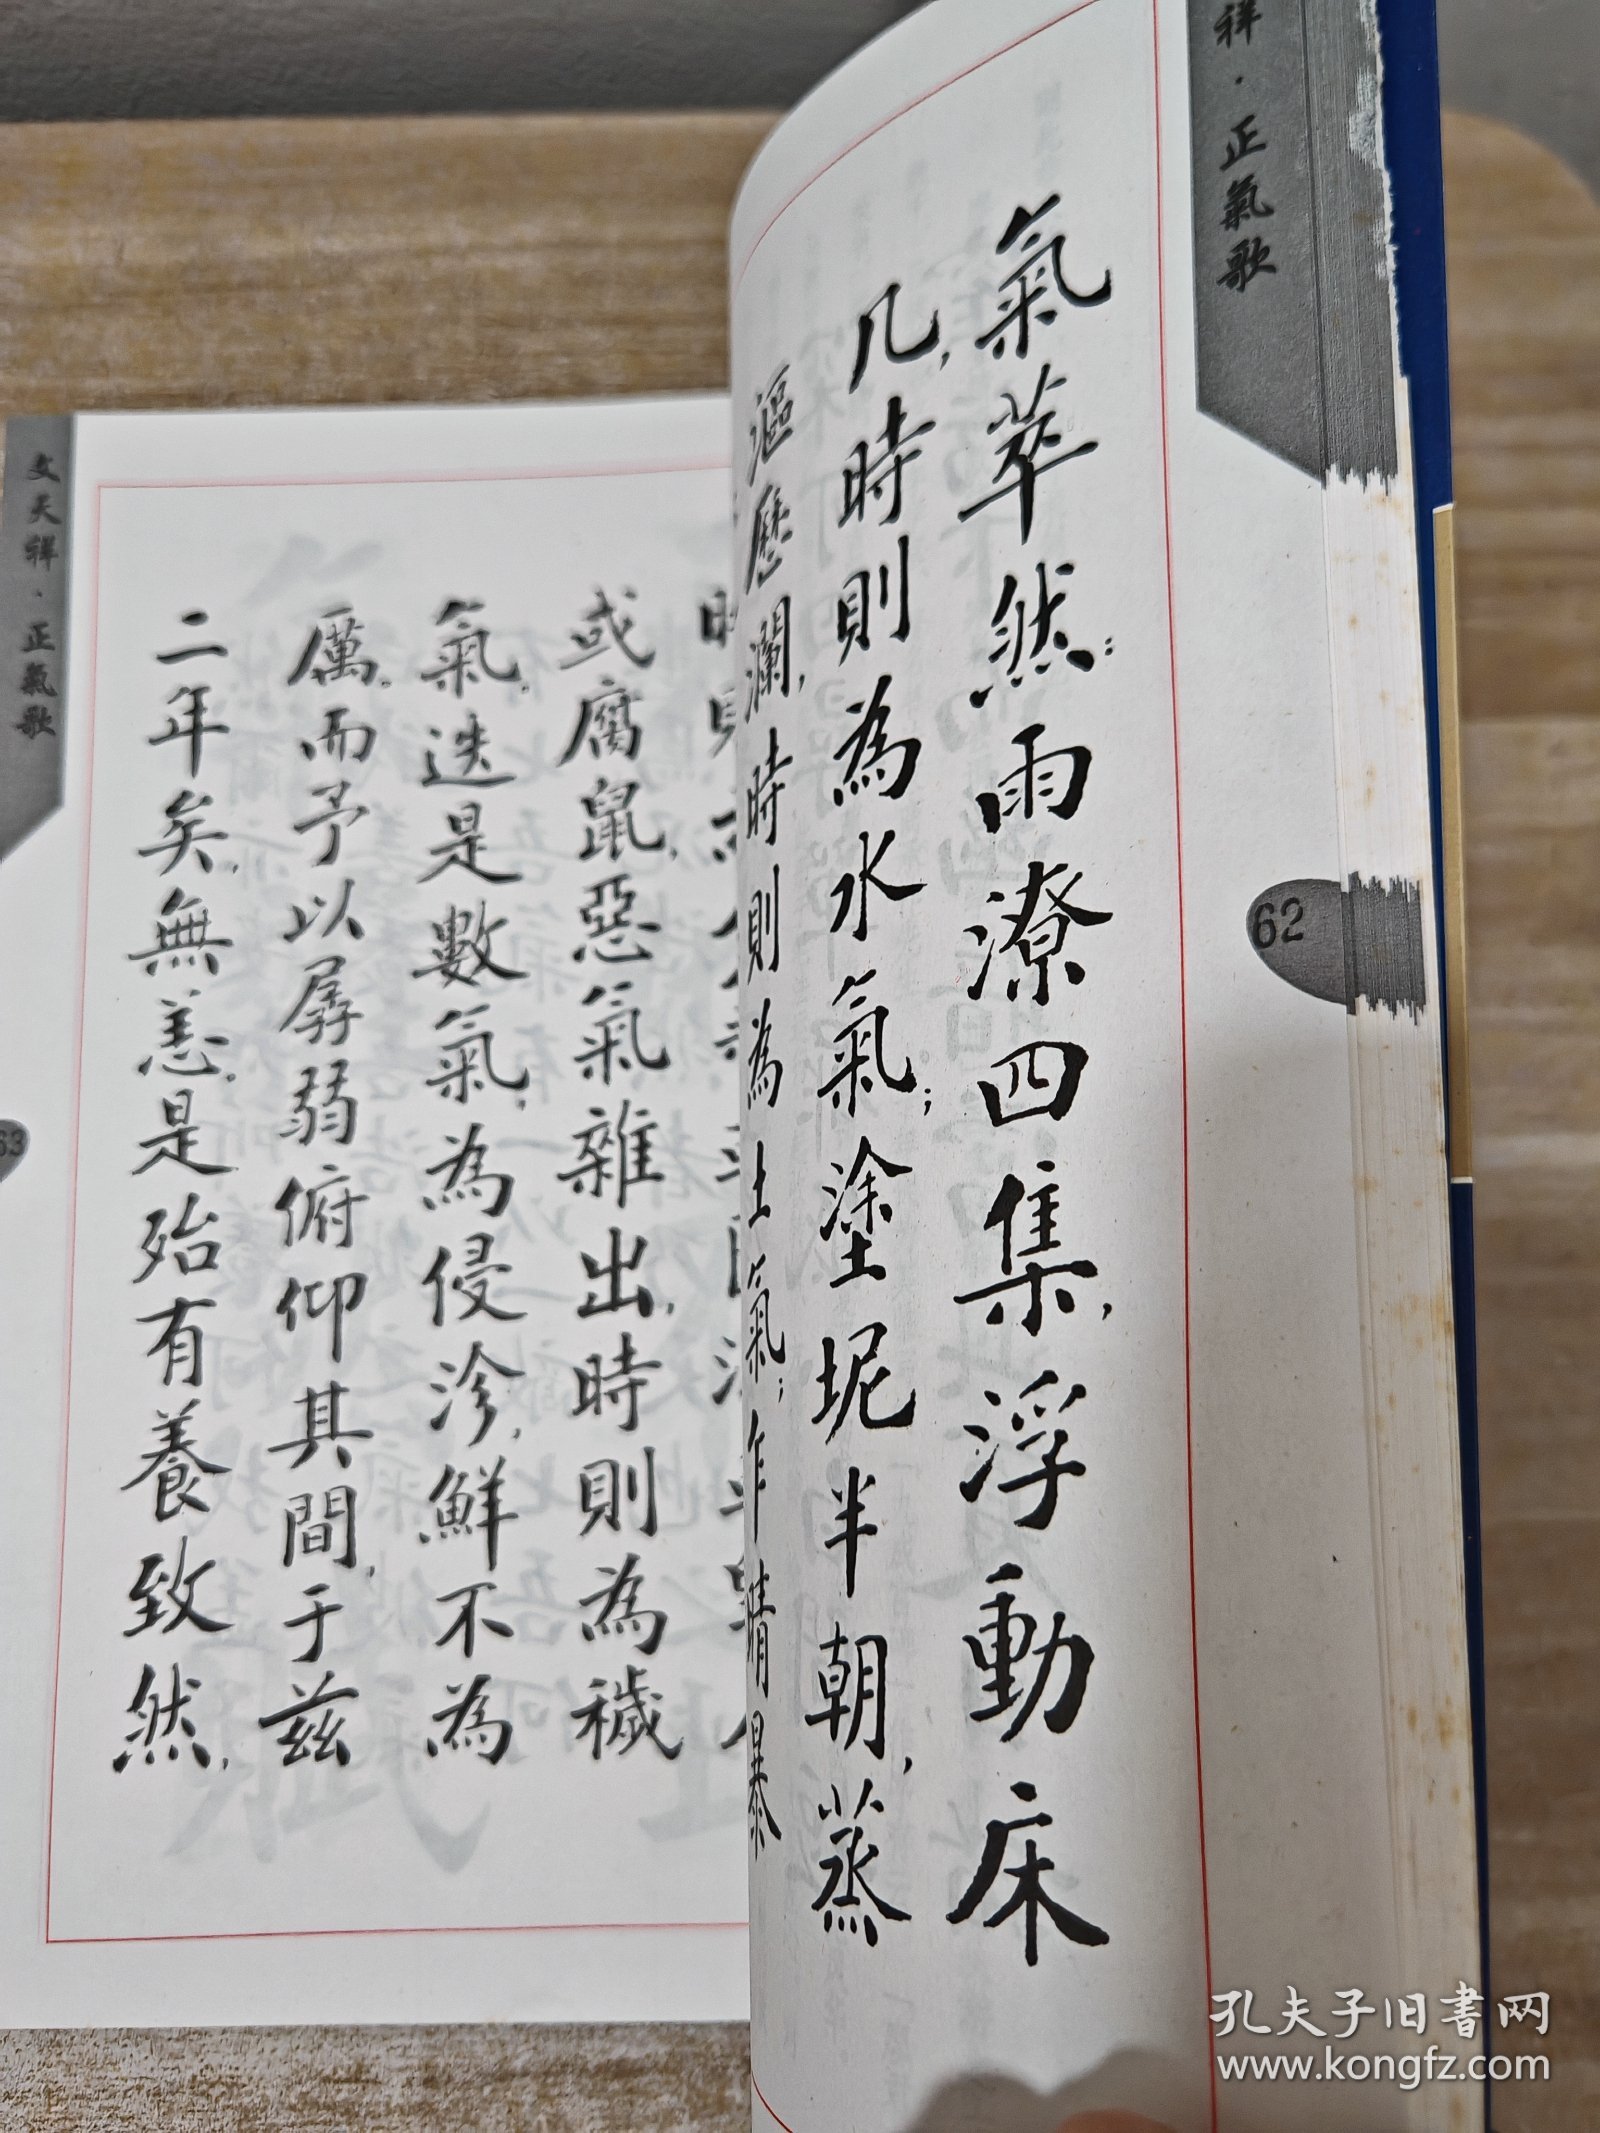 祥·正氣歌
氣萃然；雨潦四集，浮動床
几，時則為水氣；塗坭半朝，蒸
漚歷瀾，時則為土氣；乍晴暴
62
或腐鼠，惡氣雜出，時則為穢
氣。迭是數氣，為侵沴，鮮不為
厲。而予以孱弱俯仰其間，于茲
二年矣，無恙，是殆有養致然，
文天祥·正氣歌
63
孔夫子旧書网
www.kongfz.com